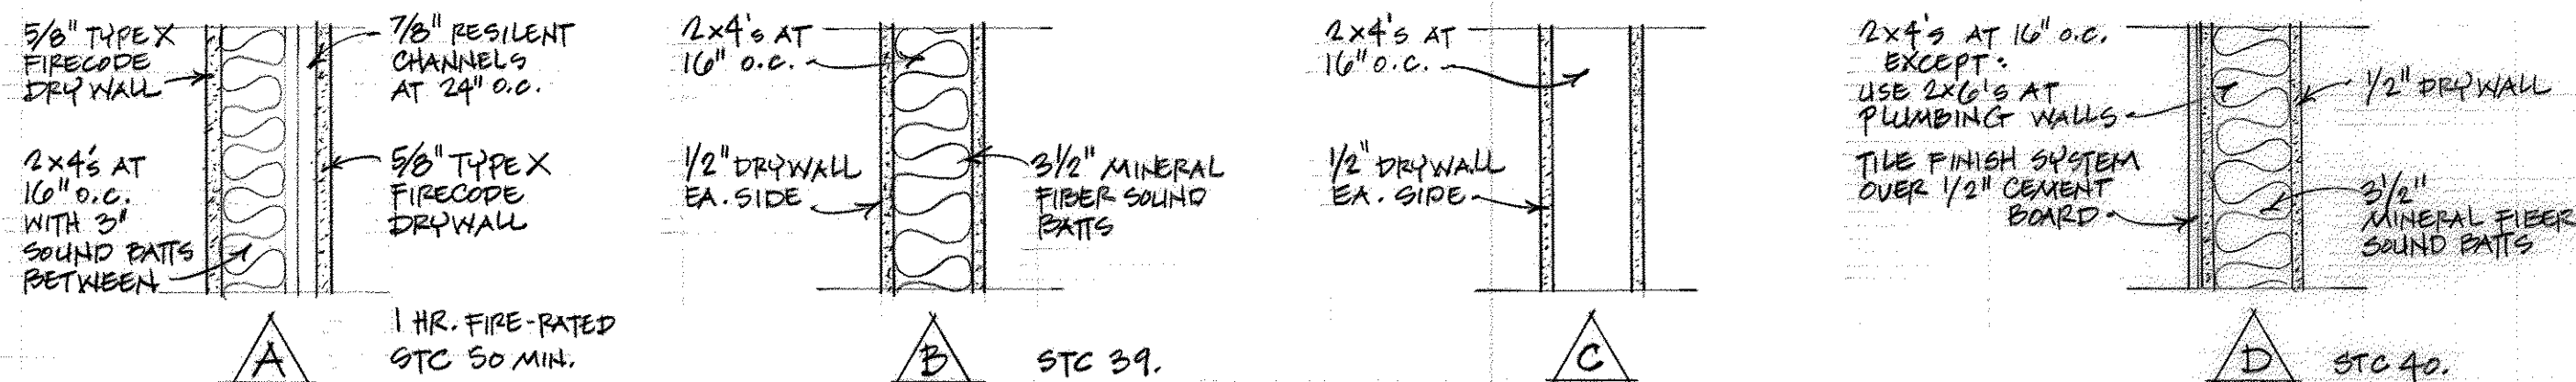 5/8" TYPE X
FIRECODE
DRYWALL
2x4's AT
16" O.C.
WITH 3"
SOUND BATTS
BETWEEN
7/8" RESILENT
CHANNELS
AT 24" O.C.
5/8" TYPE X
FIRECODE
DRYWALL
A
1 HR. FIRE-RATED
STC 50 MIN.
2x4's AT
16" O.C.
1/2" DRYWALL
EA. SIDE
3 1/2" MINERAL
FIBER SOUND
BATTS
B
STC 39.
2x4's AT
16" O.C.
1/2" DRYWALL
EA. SIDE
C
2x4's AT 16" O.C.
EXCEPT:
USE 2x6's AT
PLUMBING WALLS
TILE FINISH SYSTEM
OVER 1/2" CEMENT
BOARD
1/2" DRYWALL
3 1/2"
MINERAL FIBER
SOUND BATTS
D
STC 40.